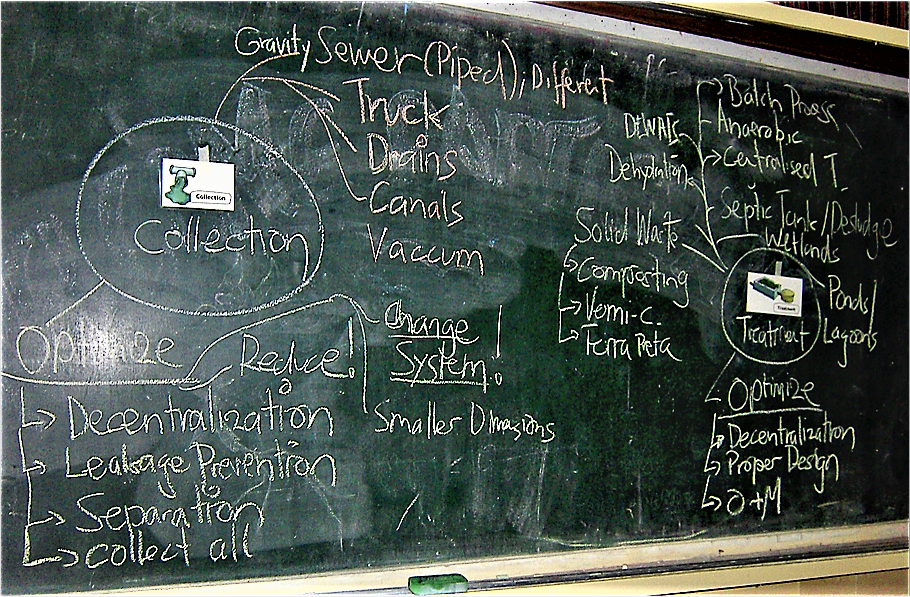 Gravity Sewer (Piped), Different
Truck
Drains
Canals
Vaccum
Collection
Collection
Optimize
Reduce!
Change
System!
Smaller Dimasions
Decentralization
Leakage Prevention
Separation
collect all
Batch Process
Anaerobic
Centralised T.
Septic Tank/Desludge
Wetlands
Ponds/
Lagoons
DEWATs
Dehydration
Solid Waste
Composting
Vemi-c.
Terra Preta
Treatment
Treatment
Optimize
Decentralization
Proper Design
O+M